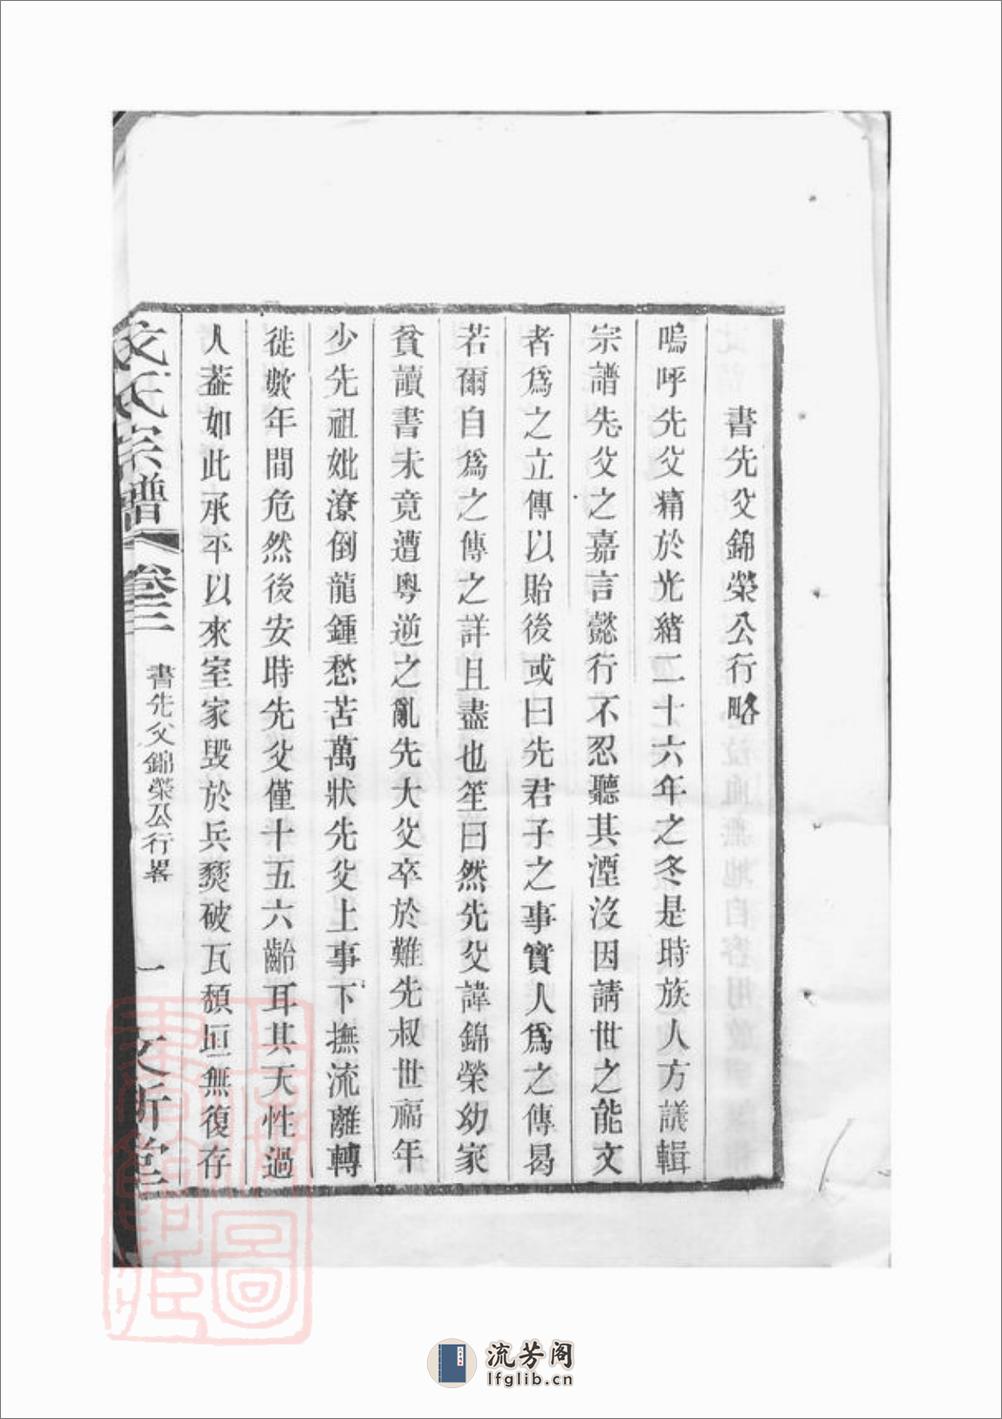 書先父錦榮公行略
嗚呼先父痛於光緒二十六年之冬是時族人方議輯
宗譜先父之嘉言懿行不忍聽其湮沒因請世之能文
者爲之立傳以貽後或曰先君子之事實人爲之傳曷
若爾自爲之傳之詳且盡也笙曰然先父諱錦榮幼家
貧讀書未竟遭粵逆之亂先大父卒於難先叔世福年
少先祖妣潦倒龍鍾愁苦萬狀先父上事下撫流離轉
徙數年間危然後安時先父僅十五六齡耳其天性過
人葢如此承平以來室家毀於兵燹破瓦頽垣無復存
氏宗譜
卷三
書先父錦榮公行畧
一
文斯堂
流芳阁
lfglib.cn